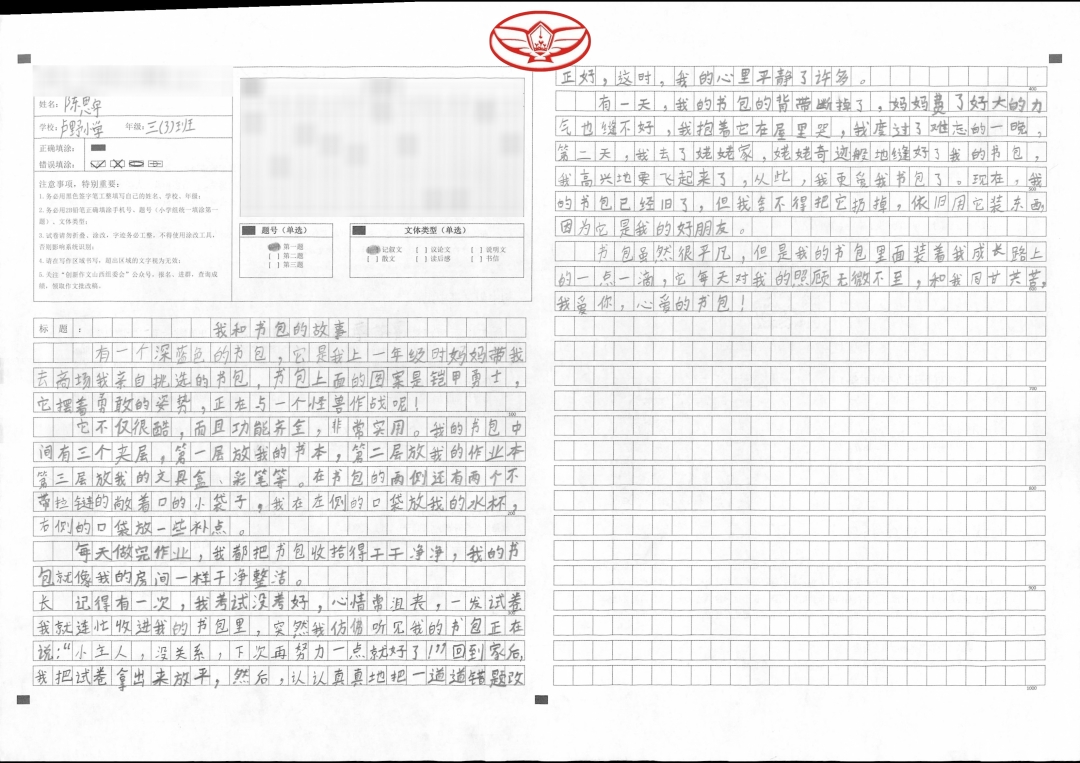 姓名：陈思年
学校：卢野小学 年级：三(3)班
正确填涂：
错误填涂：
注意事项，特别重要：
1.务必用黑色签字笔工整填写自己的姓名、学校、年级；
2.务必用2B铅笔正确填涂手机号、题号（小学组统一填涂第一
题）、文体类型；
3.试卷请勿折叠、涂改，字迹务必工整，不得使用涂改工具，
否则影响系统识别；
4.请在写作区域书写，超出区域的文字视为无效；
5.关注“创新作文山西组委会”公众号，报名、进群、查询成
绩，领取作文批改稿。
题号（单选）
第一题
[ ] 第二题
[ ] 第三题
文体类型（单选）
记叙文 [ ] 议论文 [ ] 说明文
[ ] 散文 [ ] 读后感 [ ] 书信
标题：我和书包的故事
有一个深蓝色的书包，它是我上一年级时妈妈带我
去商场我亲自挑选的书包，书包上面的图案是铠甲勇士，
它摆着勇敢的姿势，正在与一个怪兽作战呢！
100
它不仅很酷，而且功能齐全，非常实用。我的书包中
间有三个夹层，第一层放我的书本，第二层放我的作业本
第三层放我的文具盒、彩笔等。在书包的两侧还有两个不
带拉链的敞着口的小袋子，我在左侧的口袋放我的水杯，
200
右侧的口袋放一些补点。
每天做完作业，我都把书包收拾得干干净净，我的书
包就像我的房间一样干净整洁。
长 记得有一次，我考试没考好，心情常沮丧，一发试卷
300
我就连忙收进我的书包里，突然我仿佛听见我的书包正在
说：“小主人，没关系，下次再努力一点就好了！”回到家后，
我把试卷拿出来放平，然后，认认真真地把一道道错题改
正好，这时，我的心里平静了许多。
400
有一天，我的书包的背带断掉了，妈妈费了好大的力
气也缝不好，我抱着它在屋里哭，我度过了难忘的一晚，
第二天，我去了姥姥家，姥姥奇迹般地缝好了我的书包，
我高兴地要飞起来了，从此，我更爱我书包了。现在，我
500
的书包已经旧了，但我舍不得把它扔掉，依旧用它装东西
因为它是我的好朋友。
书包虽然很平凡，但是我的书包里面装着我成长路上
的一点一滴，它每天对我的照顾无微不至，和我同甘共苦，
600
我爱你，心爱的书包！
700
800
900
1000